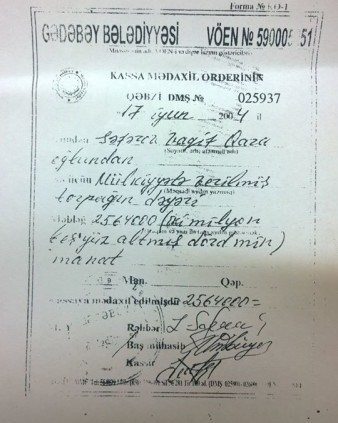 Forma № KO-1
GƏDƏBƏY BƏLƏDİYYƏSİ VÖEN № 590005 51
KASSA MƏDAXİL ORDERİNİN
QƏBZİ DMŞ № 025937
17 iyun 2004 il
Səfərov Vaqif Qara
oğlundan
üçün Mülkiyyətə verilmiş
torpağın dəyəri
Məbləğ 2564000 (iki milyon
beş yüz altmış dörd min)
manat
Man. Qəp.
kassaya mədaxil edilmişdir 2564000=
Rəhbər
Baş mühasib
Kassir